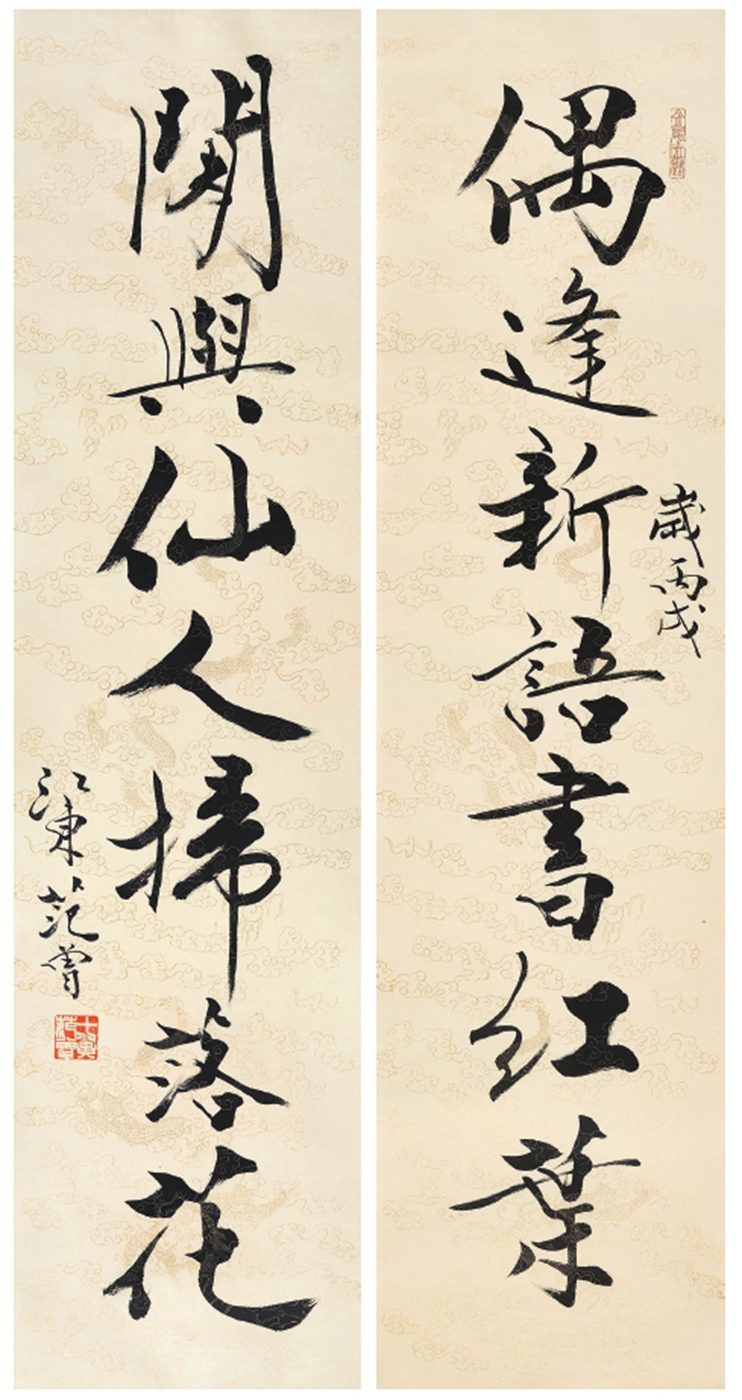 偶逢新語書紅葉
歲丙戌
閑與仙人掃落花
江東范曾
十翼范曾